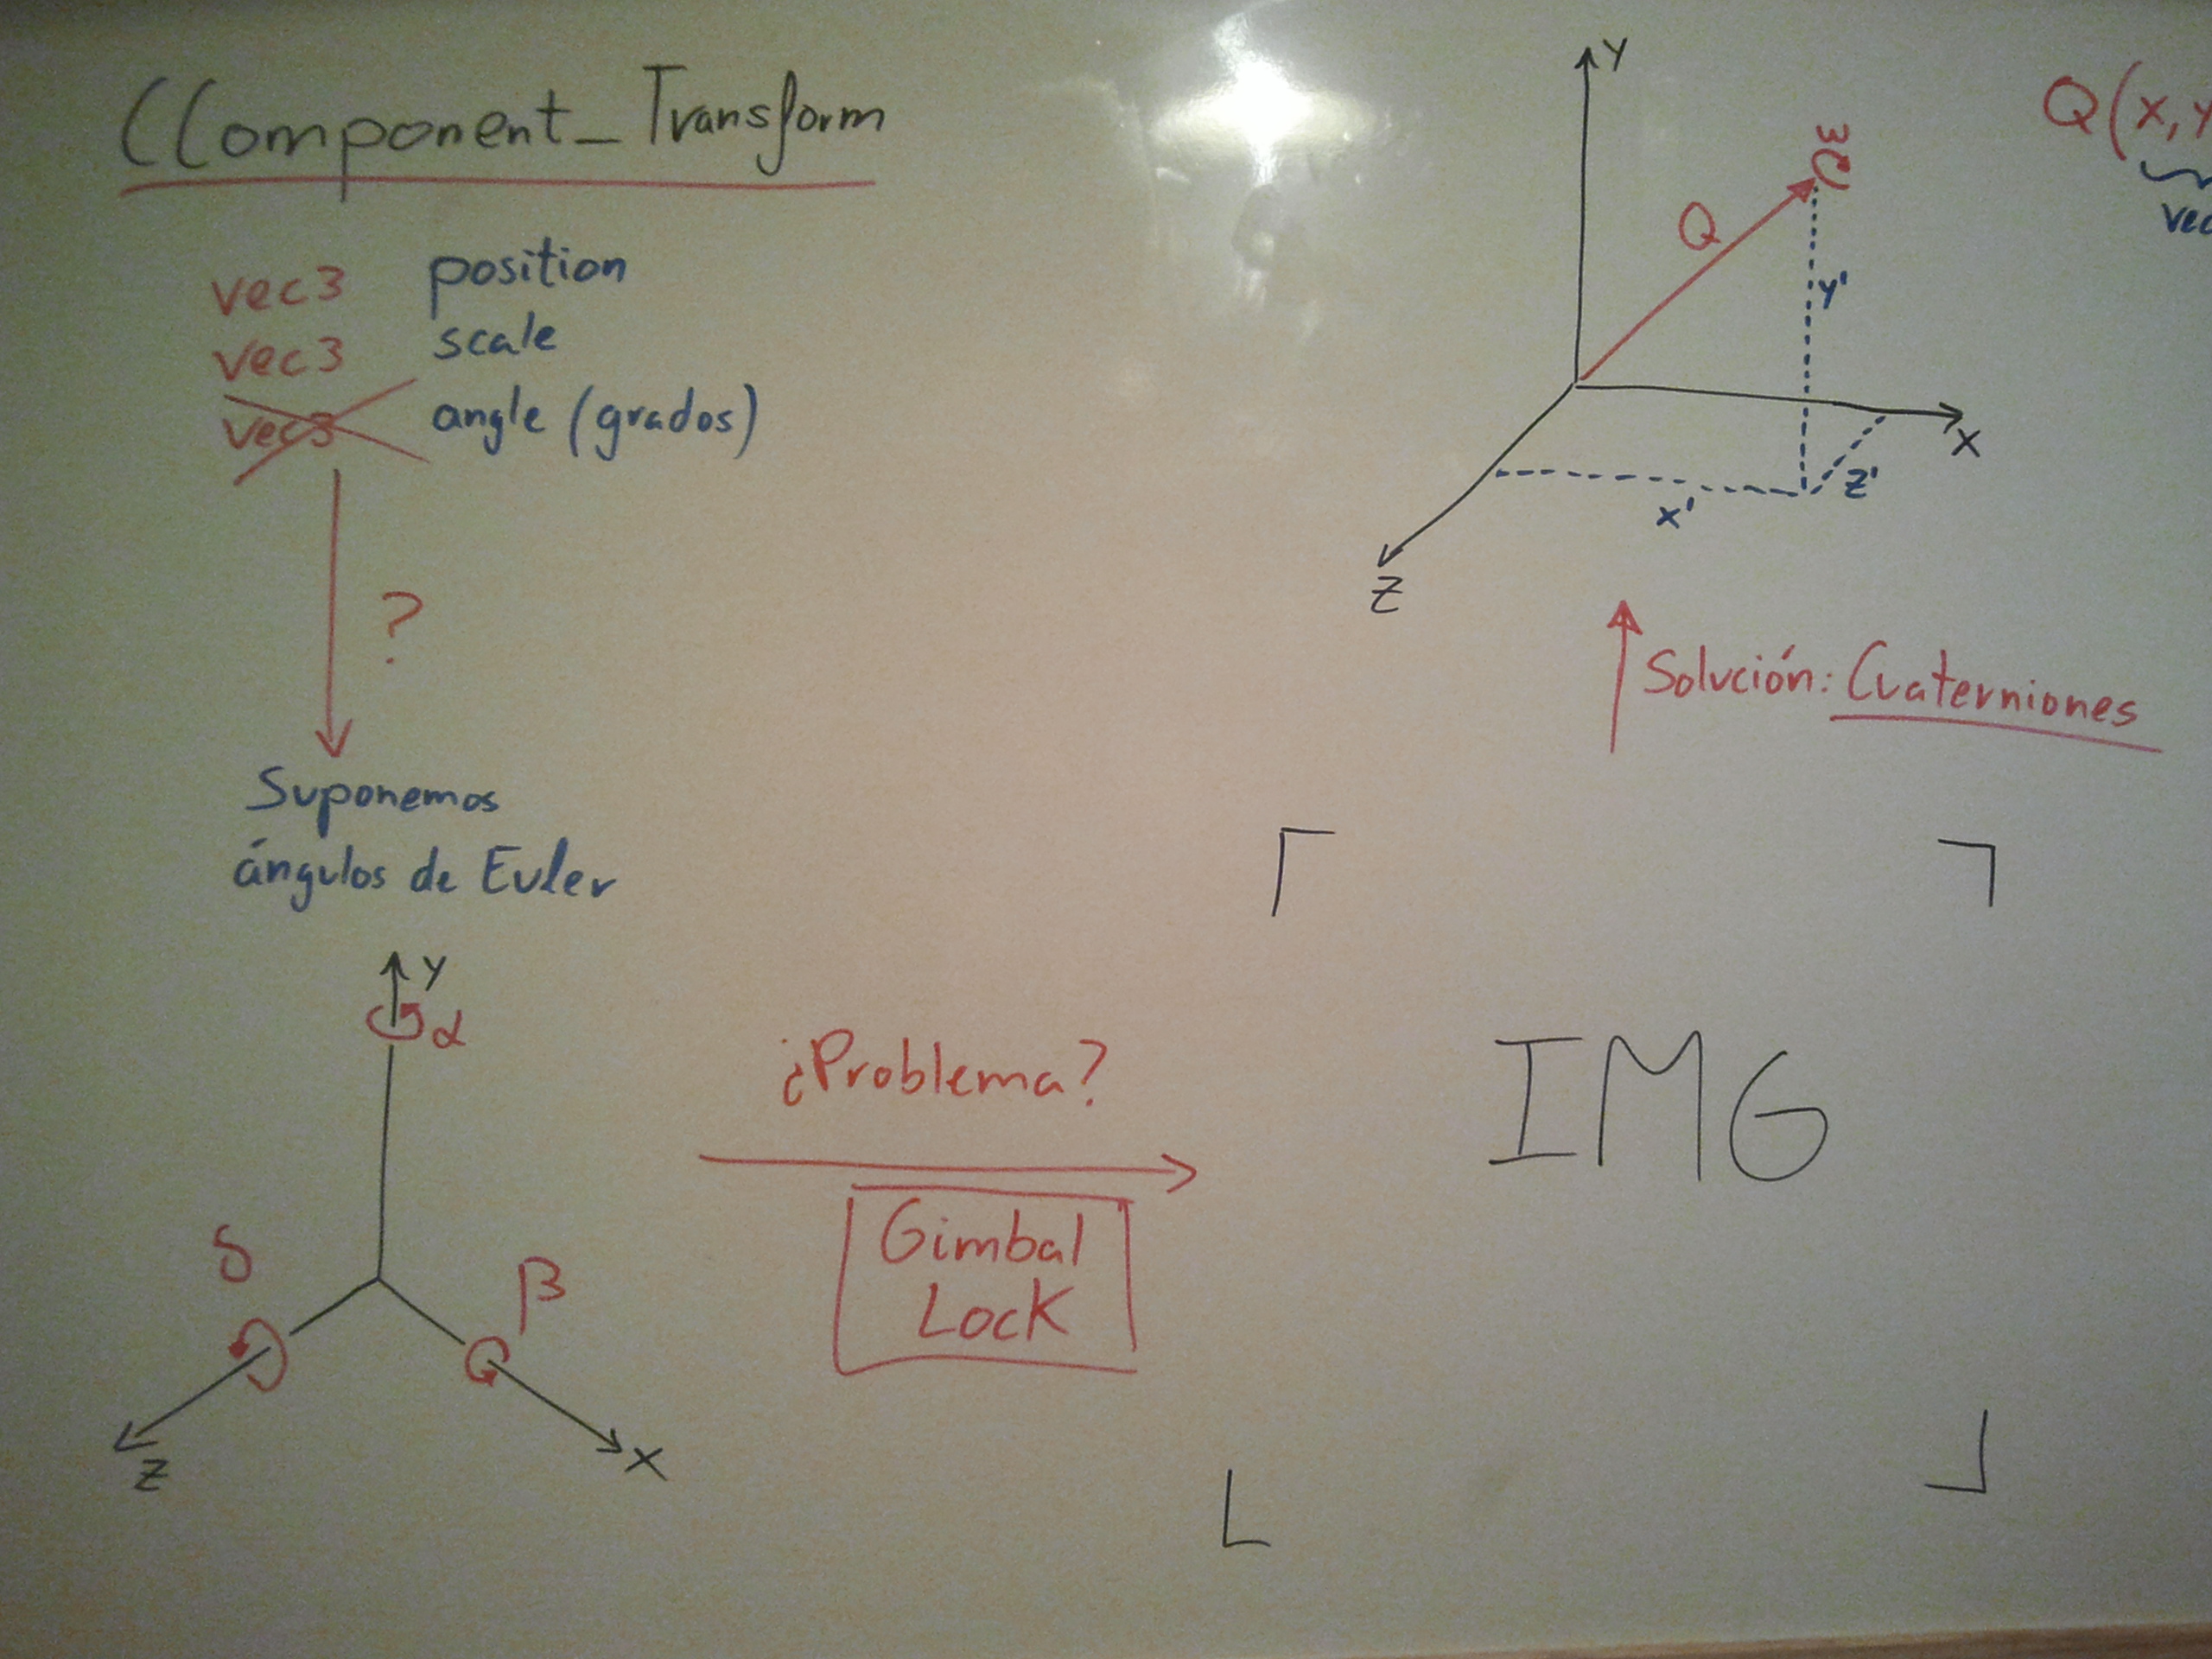 CComponent_Transform
vec3 position
vec3 scale
vec3 angle (grados)
?
Suponemos
ángulos de Euler
Y
α
δ
β
Z
X
¿Problema?
Gimbal
Lock
IMG
Solución: Cuaterniones
Y
ω
Q
y'
X
z'
x'
Z
Q(x, y
vec